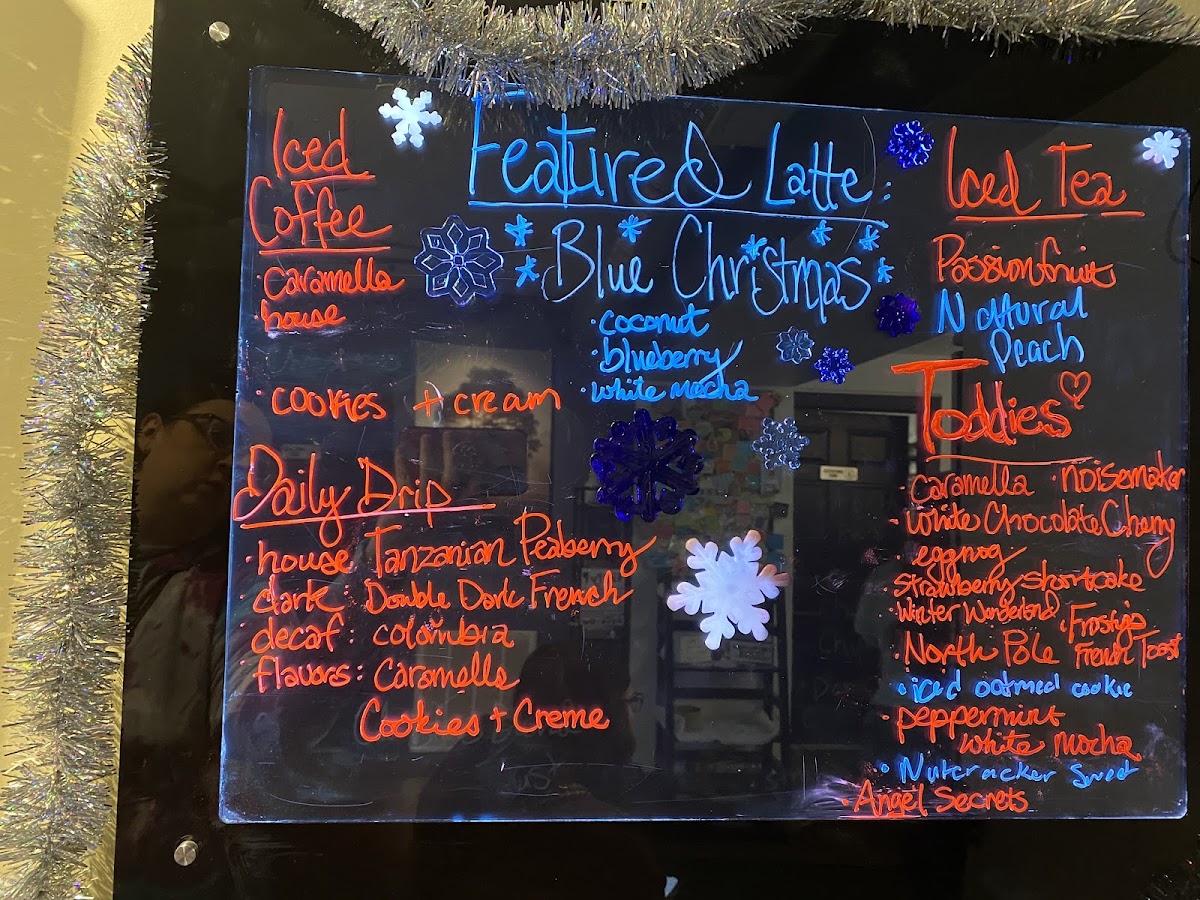 Iced
Coffee
· caramella
· house
· cookies + cream
Daily Drip
· house Tanzanian Peaberry
· dark: Double Dark French
· decaf: colombia
· flavors: Caramella
Cookies + Creme
Featured Latte:
Blue Christmas
· coconut
· blueberry
· white mocha
Iced Tea
Passionfruit
Natural
Peach
Toddies
· Caramella · noisemaker
· White Chocolate Cherry
· eggnog
· Strawberry Shortcake
· Winter Wonderland
· Frosty's
French Toast
· North Pole
· iced oatmeal cookie
· peppermint
white mocha
· Nutcracker Sweet
· Angel Secrets